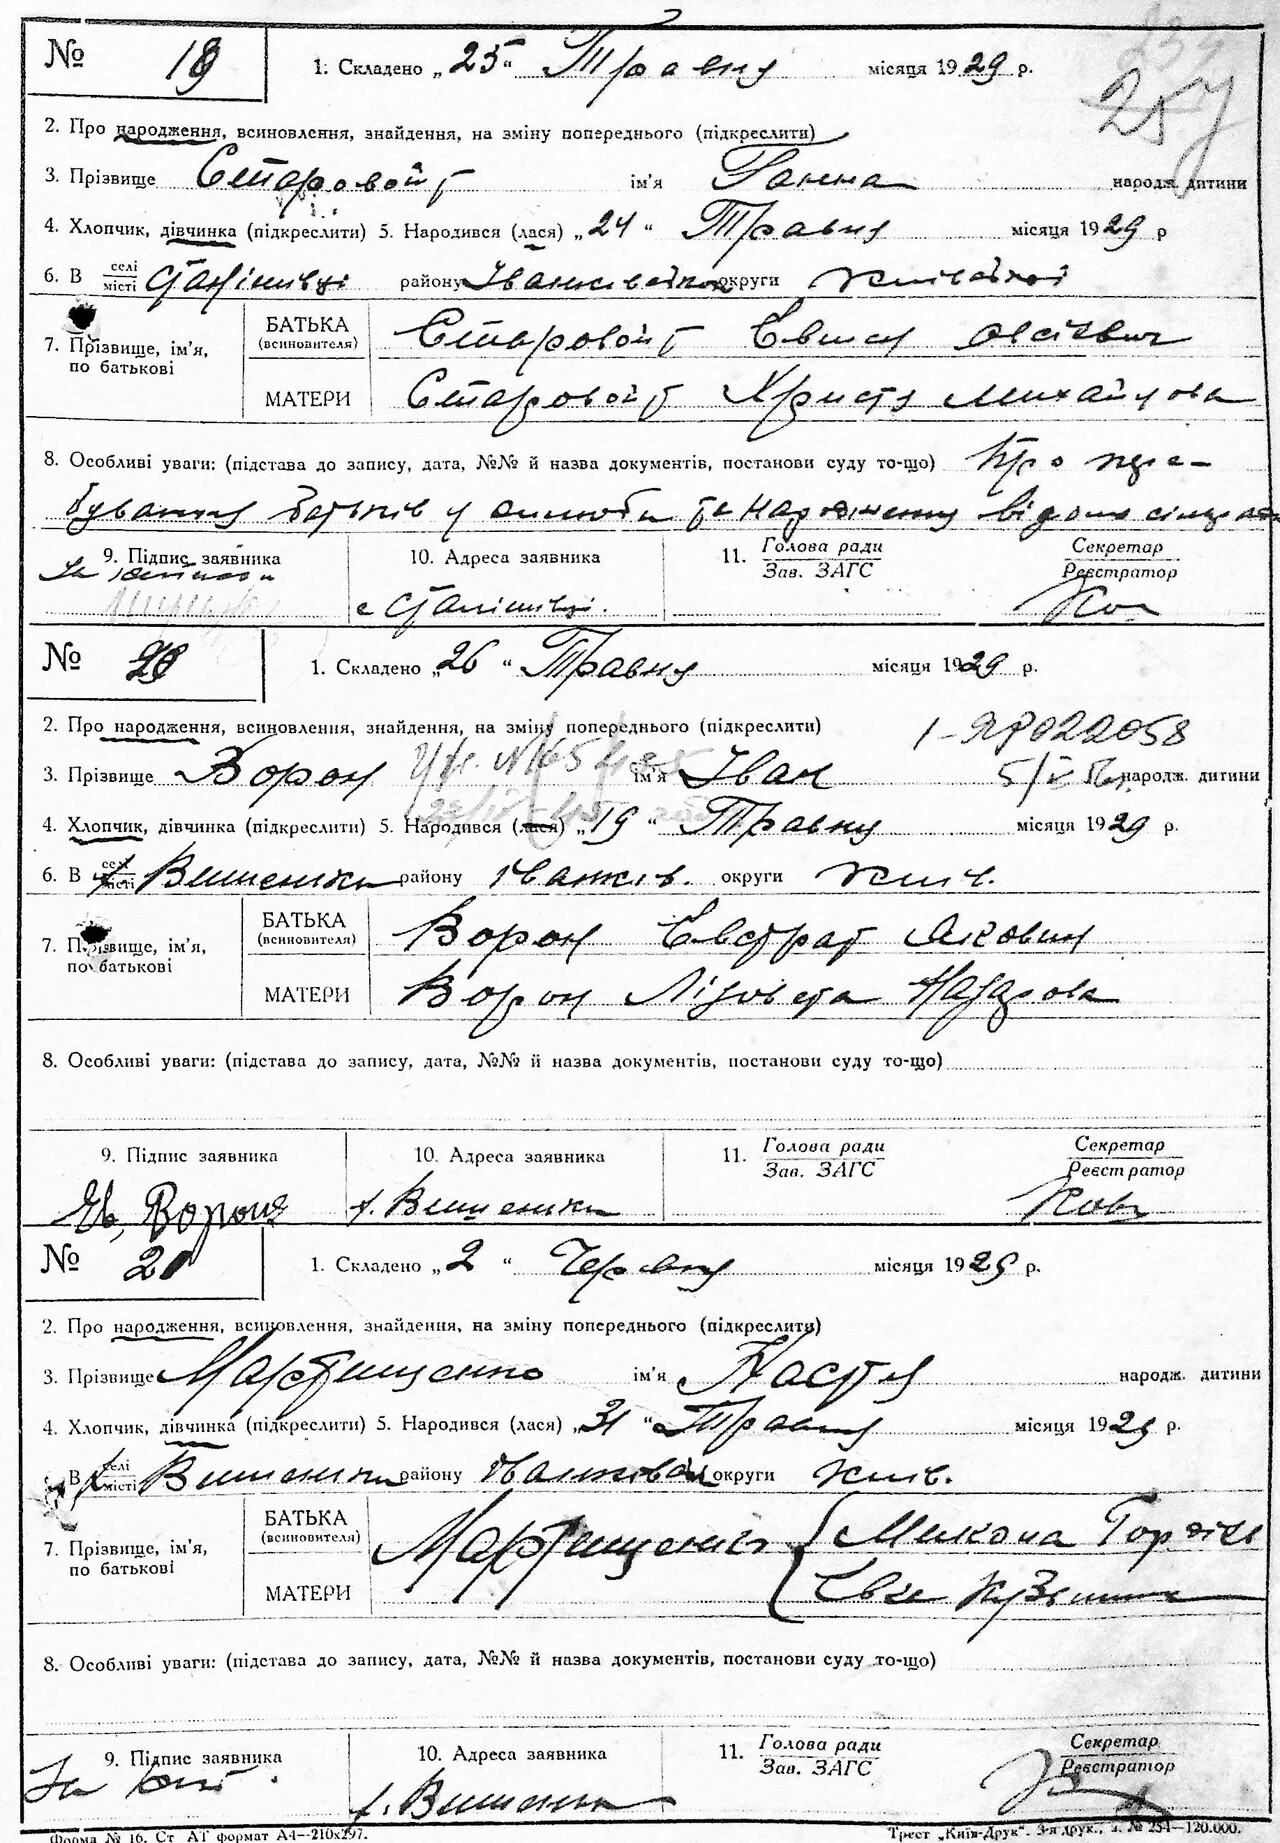 257
№ 18 1. Складено „25“ Травня місяця 1929 р.
2. Про народження, всиновлення, знайдення, на зміну попереднього (підкреслити)
3. Прізвище Старовойт ім'я Ганна народж. дитини
4. Хлопчик, дівчинка (підкреслити) 5. Народився (лася) „24“ Травня місяця 1929 р
6. В селі/місті Станішівці району Іванківської округи Київської
7. Прізвище, ім'я, по батькові
БАТЬКА (всиновителя) Старовойт Овсієвич
МАТЕРИ Старовойт Христя Михайлова
8. Особливі уваги: (підстава до запису, дата, №№ й назва документів, постанови суду то-що) Про пере-
бування батьків у шлюбі та народження відомо сільраді
9. Підпис заявника 10. Адреса заявника 11. Голова ради/Зав. ЗАГС Секретар/Реєстратор
с Станішівці.
№ 1. Складено „26“ Травня місяця 1929 р.
2. Про народження, всиновлення, знайдення, на зміну попереднього (підкреслити)
3. Прізвище Ворон ім'я Іван народж. дитини
4. Хлопчик, дівчинка (підкреслити) 5. Народився (лася) „19“ Травня місяця 1929 р.
6. В селі/місті Вишеньки району Іванків. округи Київ.
7. Прізвище, ім'я, по батькові
БАТЬКА (всиновителя) Ворон Євстрат Якович
МАТЕРИ Ворон Лізовета Назарова
8. Особливі уваги: (підстава до запису, дата, №№ й назва документів, постанови суду то-що)
9. Підпис заявника 10. Адреса заявника 11. Голова ради/Зав. ЗАГС Секретар/Реєстратор
Єв, Ворон х. Вишеньки
№ 20 1. Складено „2“ Червня місяця 1929 р.
2. Про народження, всиновлення, знайдення, на зміну попереднього (підкреслити)
3. Прізвище Мартищенко ім'я Настя народж. дитини
4. Хлопчик, дівчинка (підкреслити) 5. Народився (лася) „31“ Травня місяця 1929 р.
6. В селі/місті Вишеньки району округи Київ.
7. Прізвище, ім'я, по батькові
БАТЬКА (всиновителя) Мартищенко Микола
МАТЕРИ Євга
8. Особливі уваги: (підстава до запису, дата, №№ й назва документів, постанови суду то-що)
9. Підпис заявника 10. Адреса заявника 11. Голова ради/Зав. ЗАГС Секретар/Реєстратор
х. Вишеньки
Форма № 16. Ст АТ формат А4—210x297. Трест „Київ-Друк“. 3-я друк., з. № 254—120.000.